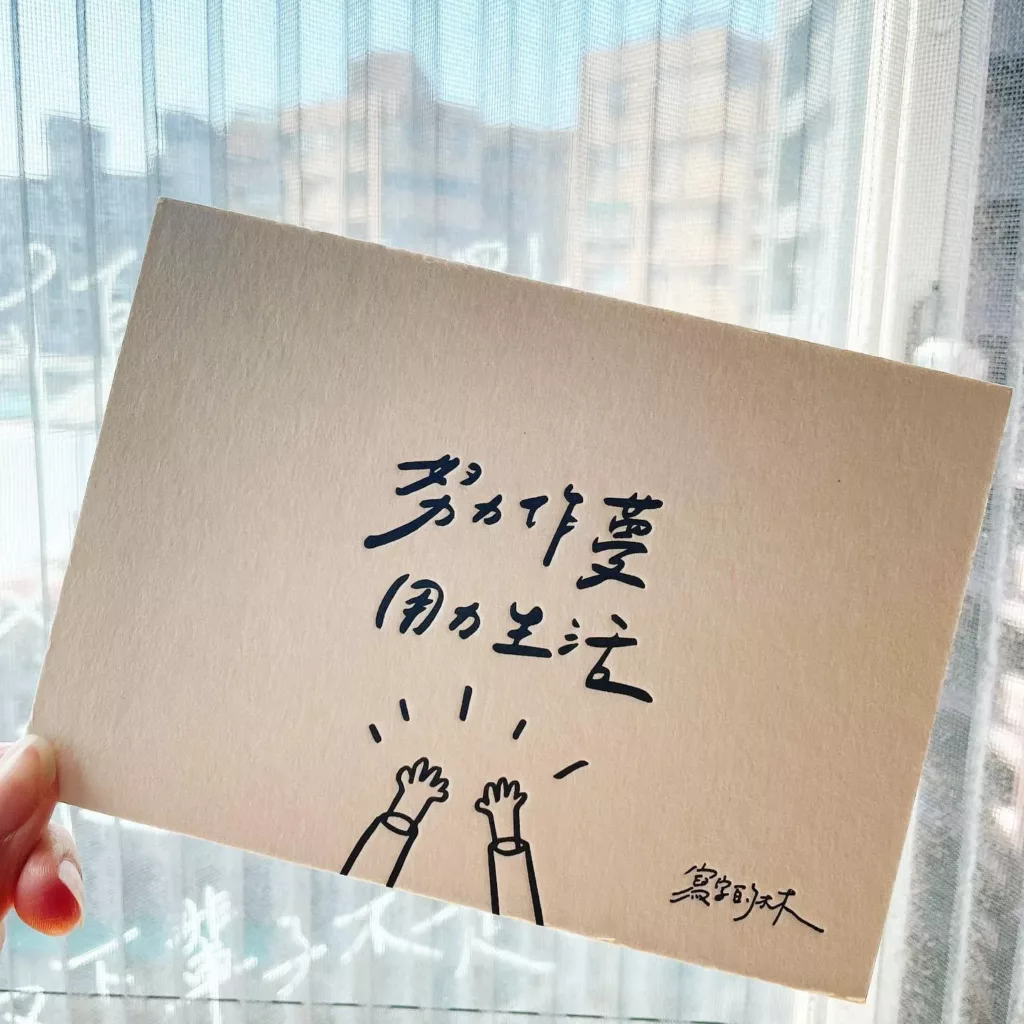 努力作夢
用力生活
寫字的林
下輩子